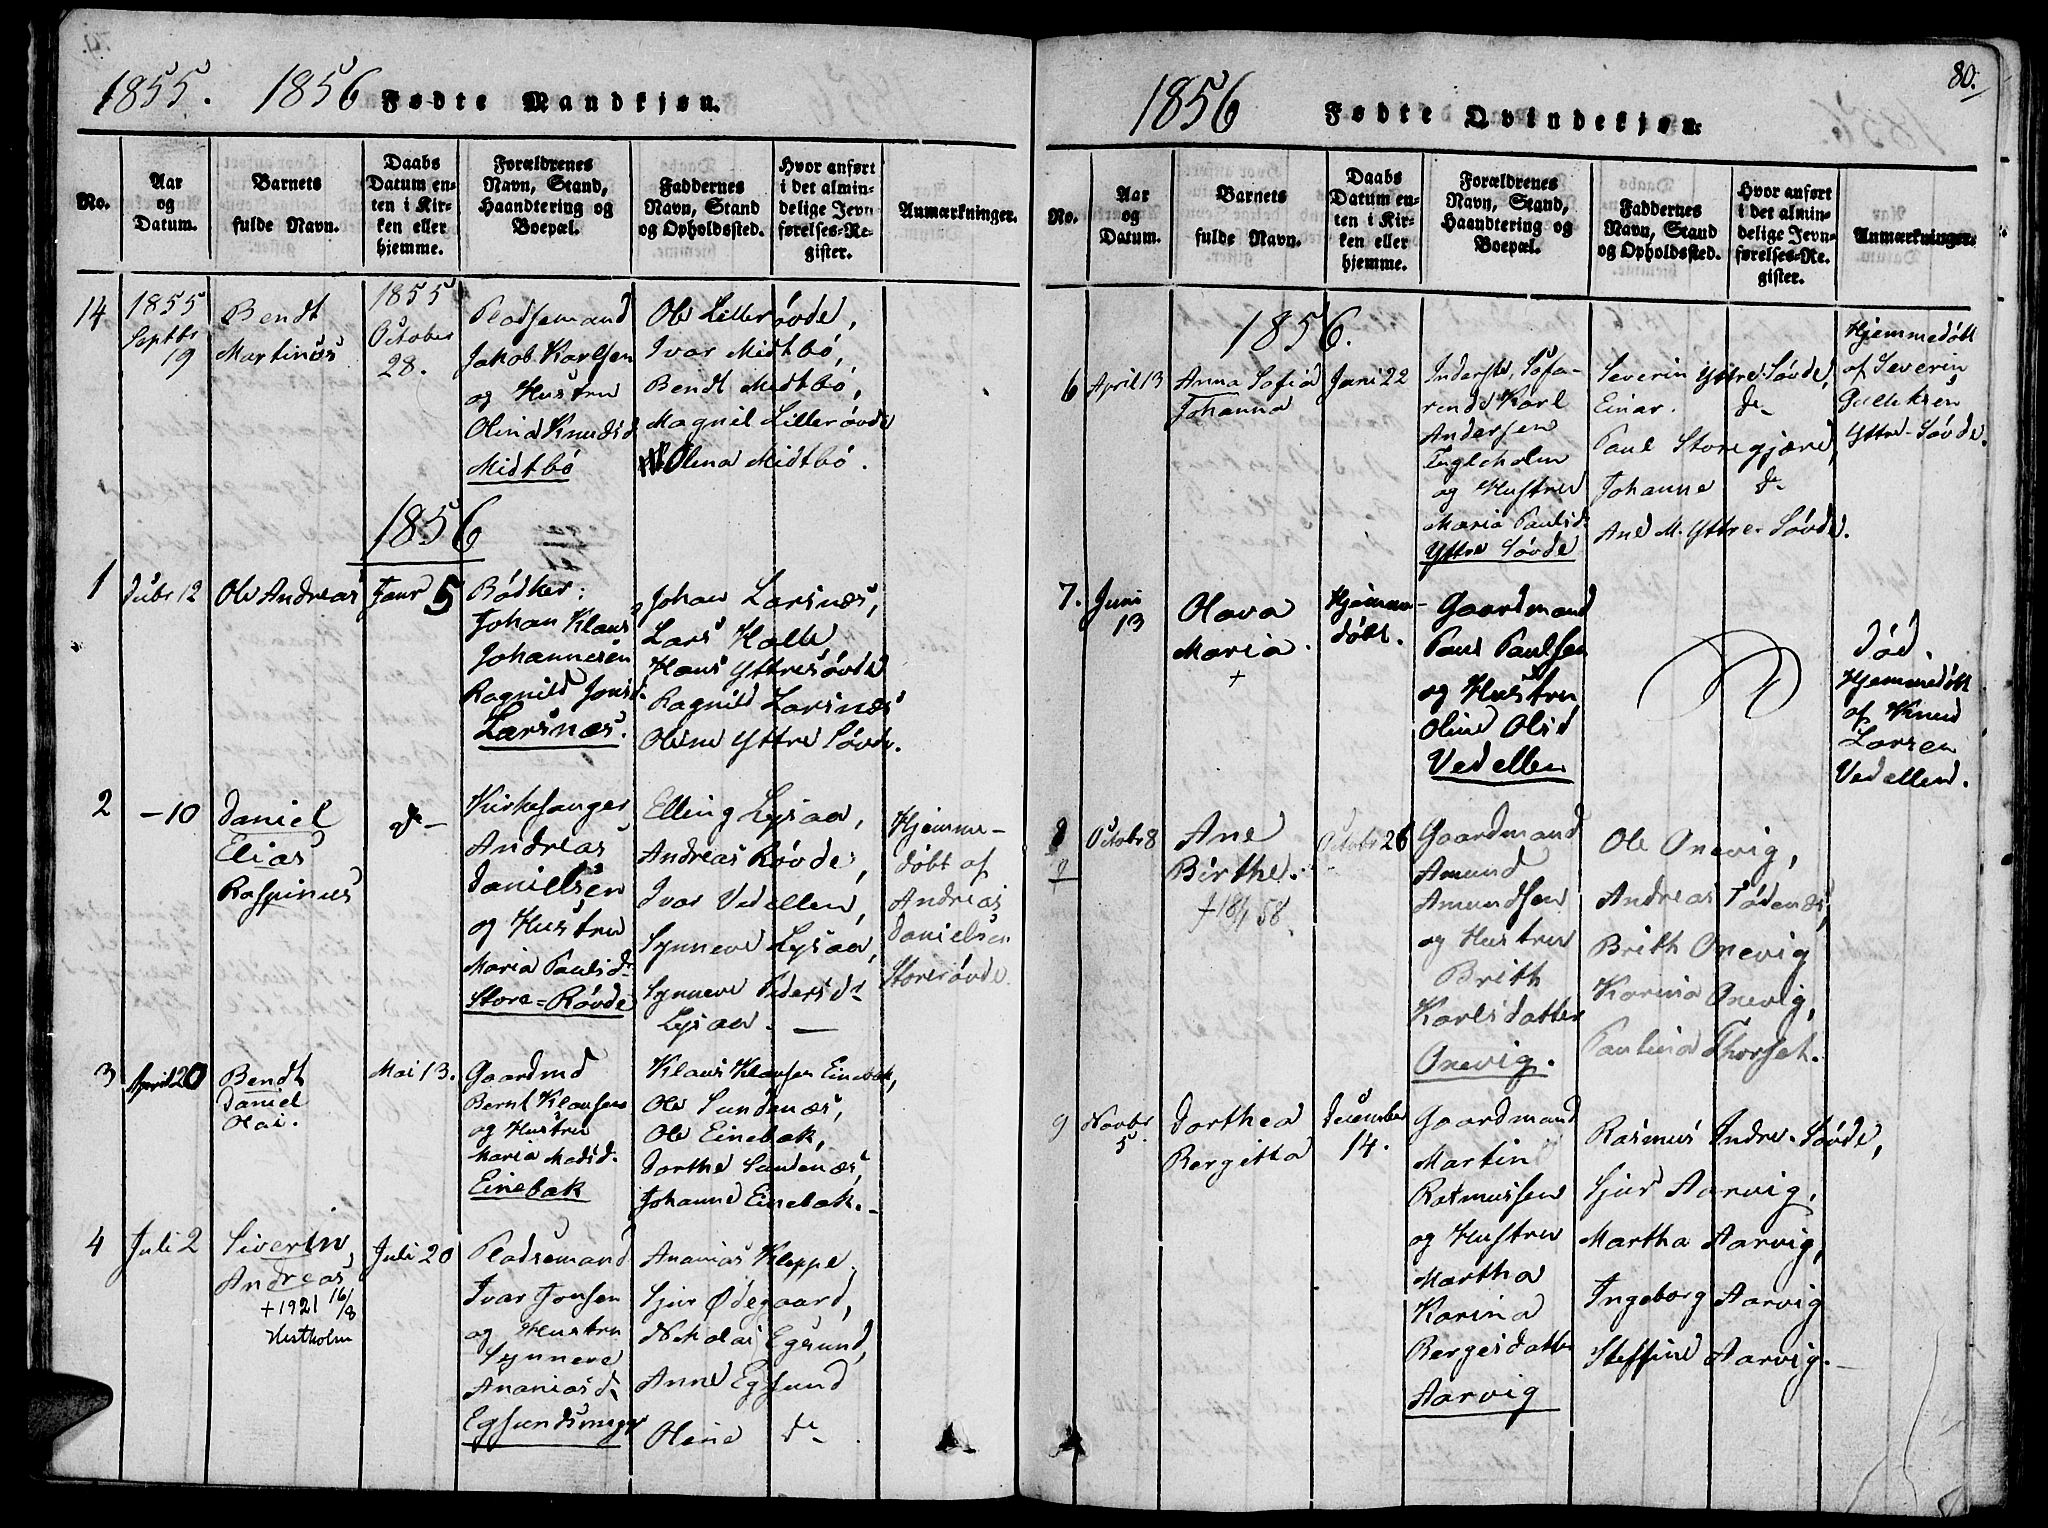 1855. 1856 Fødte Mandkjøn.
No.
Aar
og
Datum.
Barnets
fulde Navn.
Daabs
Datum en-
ten i Kir-
ken eller
hjemme.
Forældrenes
Navn, Stand,
Haandtering og
Boepæl.
Faddernes
Navn, Stand
og Opholdssted.
Hvor anført
i det almin-
delige Jevn
førelses-Re-
gister.
Anmærkninger.
14
1855
Septbr
19
Bendt
Martinus
1855
October
28.
Pladsemand
Jakob Karlsen
og Hustru
Olina Knudsd
Midtbö
Ole Lillerövde,
Ivar Midtbö,
Bendt Midtbö,
Magnil Lillerövde
Olina Midtbö.
1856
1
Dcbr 12
Ole Andreas
Janr 5
Bödker:
Johan Klaus
Johannesen
Ragnild Jonsd.
Larsnæs.
Johan Larsnæs,
Lars Kolle
Hans Yttresövde
Ragnild Larsnæs
Oline Yttre Sövde.
2
- 10
Daniel
Elias
Raspinus
do -
Kirkesanger
Andreas
Danielsen
og Hustru
Maria Paulsd.
Store=Rövde
Elling Lysaa,
Andreas Rövde,
Ivar Vedellen,
Synneve Lysaa,
Synneve Pedersdr
Lysaa. —
Hjemme-
döbt af
Andreas
Danielsen
Storerövde.
3
April 20
Bendt
Daniel
Olai.
Mai 13.
Gaardmd
Bernt Klausen
og Hustru
Maria Madsd.
Einebak
Klaus Klausen Einebak,
Ole Sundnæs,
Ole Einebak,
Dorthe Sundnæs,
Johanne Einebak.-
4
Juli 2
Siverin
Andreas
+1921 16/8
Hestholm
Juli 20
Pladsemand
Ivar Jonsen
og Hustru
Synneve
Ananiasd.
Egsundsmyr
Ananias Kleppe,
Sjur Ødegaard,
Nikolai Egsund,
Anne Egsund
Oline do.
80.
1856 Fødte Qvindekjøn.
No.
Aar
og
Datum.
Barnets
fulde Navn.
Daabs
Datum en-
ten i Kir-
ken eller
hjemme.
Forældrenes
Navn, Stand,
Haandtering og
Boepæl.
Faddernes
Navn, Stand
og Opholdssted.
Hvor anført
i det almin-
delige Jevn-
førelses-Re-
gister.
Anmærkninger.
1856.
6
April 13
Anna Sofia
Johanna
Juni 22
Inderste, Sofa-
rende Karl
Andersen
Engleholm
og Hustru
Maria Paulsdr
Yttre Sövde
Severin Yttre-Sövde,
Einar. do
Paul Storegjære,
Johanne do
Ane M. Yttre-Sövde.
Hjemmedöbt
af Severin
Gulliksen
Yttre-Sövde.
7.
Juni
13
Olava
Maria.
+
Hjemme-
döbt.
Gaardmand
Paul Paulsen
og Hustru
Oline Olsd
Vedellen
Död.
Hjemmedöbt
af Knud
Larsen
Vedellen.
8
Octobr 8
Ane
Birthe.
+ 18/1 58.
Octobr 26
Gaardmand
Amund
Amundsen
og Hustru
Brith
Karlsdatter
Onevig.
Ole Onevig,
Andreas Södenæs,
Brith Onevig
Karina Onevig,
Paulina Thorset.
9
Novbr
5.
Dorthea
Bergitta
December
14.
Gaardmand
Martin
Rasmussen
og Hustru
Martha
Karina
Bergesdatter
Aarvig
Rasmus Indre-Sövde,
Sjur Aarvig,
Martha Aarvig,
Ingeborg Aarvig
Steffine Aarvig.-